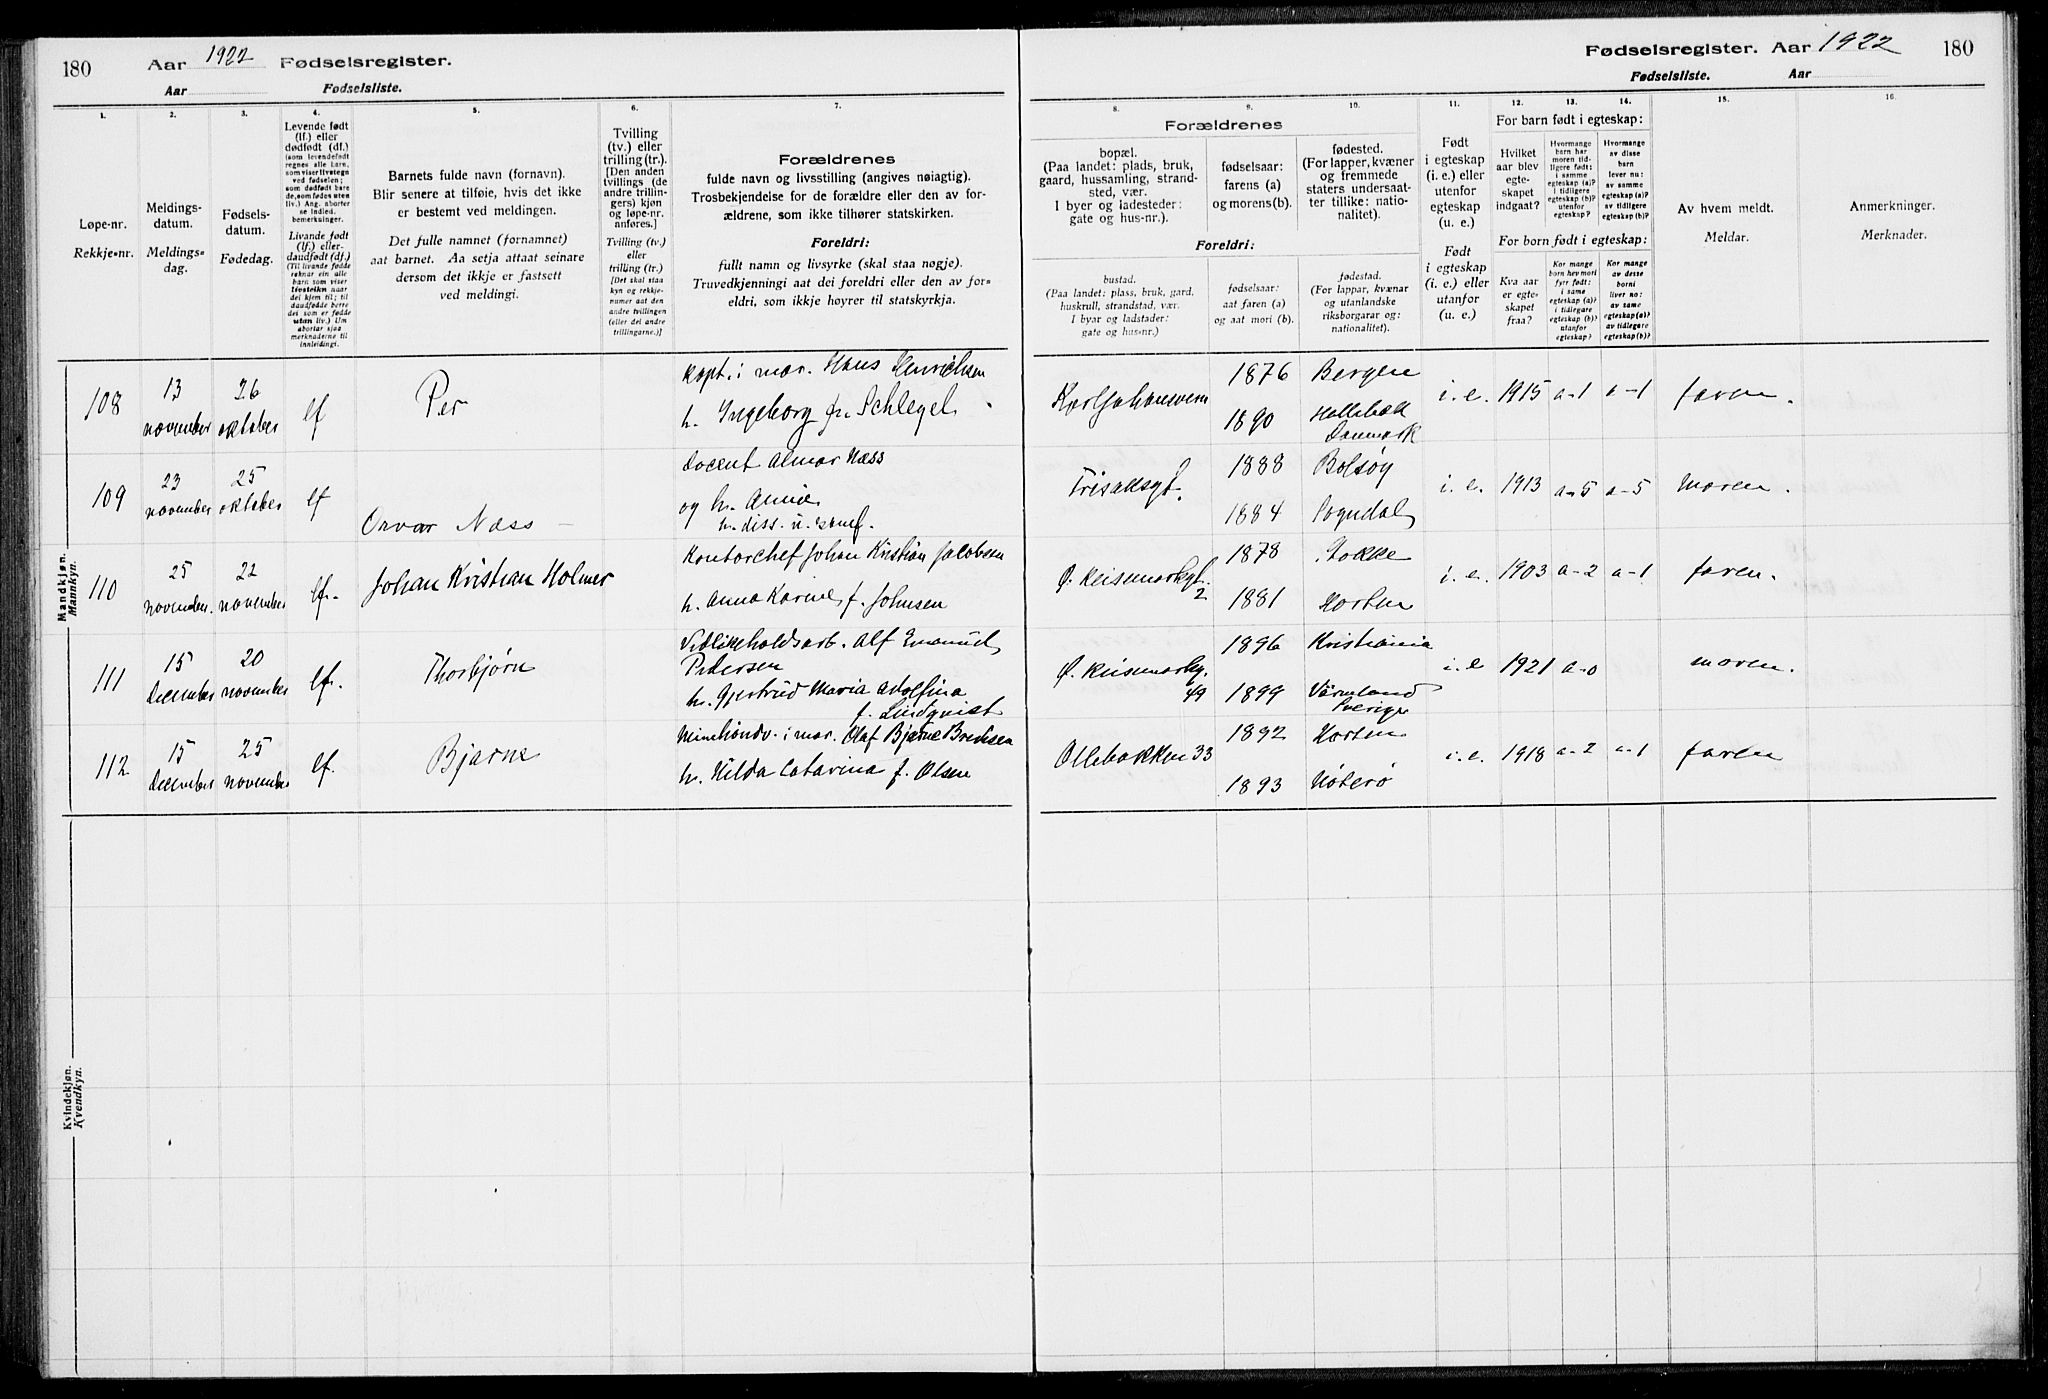 180
Aar 1922 Fødselsregister.
Aar Fødselsliste.
1. 2. 3. 4. 5. 6. 7.
Løpe-nr.
Rekkje-nr.
Meldings-
datum.
Meldings-
dag.
Fødsels-
datum.
Fødedag.
Levende født
(lf.) eller
dødfødt (df.)
(som levendefødt
regnes alle barn,
som viser livstegn
ved fødselen;
som dødfødt bare
de, som fødes uten
liv.) Ang. aborter
se indled.
bemerkninger.
Livande født
(lf.) eller-
daudfødt (df.)
(Til livande fødde
reknar ein alle
born som viser
livsteikn naar
dei kjem til; til
daudfødde berre
dei som er fødde
utan liv.) Um
abortar sjaa
merknaderne til
innleidingi.
Barnets fulde navn (fornavn).
Blir senere at tilføie, hvis det ikke
er bestemt ved meldingen.
Det fulle namnet (fornamnet)
aat barnet. Aa setja attaat seinare
dersom det ikkje er fastsett
ved meldingi.
Tvilling
(tv.) eller
trilling (tr.).
[Den anden
tvillings (de
andre trillin-
gers) kjøn
og løpe-nr.
anføres.]
Tvilling (tv.)
eller
trilling (tr.)
[Det skal staa
kyn og rekkje-
numer aat den
andre tvillingen
(eller dei andre
trillingarne.)]
Forældrenes
fulde navn og livsstilling (angives nøiagtig).
Trosbekjendelse for de forældre eller den av for-
ældrene, som ikke tilhører statskirken.
Foreldri:
fullt namn og livsyrke (skal staa nøgje).
Truvedkjenningi aat dei foreldri eller den av for-
eldri, som ikkje høyrer til statskyrkja.
Mandkjøn.
Mannkyn.
108 13 november 26 oktober lf Per
kapt. i mar. Hans Henrichsen
h. Ingeborg f. Schlegel
109 23 november 25 oktober lf Orvar Næss
docent Almar Næss
og h. Annie
h. diss. u. samf.
110 25 november. 22 november lf. Johan Kristian Holmer
Kontorchef Johan Kristian Jacobsen
h. Anna Karine f. Johnsen
111 15 december 20 november lf. Thorbjørn
Vedlikeholdsarb. Alf Emanuel
Pedersen
h. Gjertrud Maria Adolfina
f. Lindqvist
112 15 december 25 november lf. Bjarne
Minehåndv. i mar. Olaf Bjarne
h. Hilda Catarina f. Olsen
Kvindekjøn.
Kvendkyn.
Fødselsregister. Aar 1922 180
Fødselsliste. Aar
8. 9. 10. 11. 12. 13. 14. 15. 16.
Forældrenes
bopæl.
(Paa landet: plads, bruk,
gaard, hussamling, strand-
sted, vær.
I byer og ladesteder:
gate og hus-nr.).
fødselsaar:
farens (a)
og morens (b).
fødested.
(For lapper, kvæner
og fremmede
staters undersaat-
ter tillike: natio-
nalitet).
Foreldri:
bustad.
(Paa landet: plass, bruk, gard,
huskrull, strandstad, vær.
I byar og ladstader:
gate og hus-nr.)
fødselsaar:
aat faren (a)
og aat mori (b).
fødestad.
(For lappar, kvænar
og utanlandske
riksborgarar og:
nationalitet).
Født
i egteskap
(i. e.) eller
utenfor
egteskap
(u. e.)
Født
i egteskap
(i. e.) eller
utanfor
(u. e.)
For barn født i egteskap:
Hvilket
aar blev
egte-
skapet
indgaat?
Hvormange
barn har
moren tid-
ligere født:
i samme
egteskap (a)?
i tidligere
egteskap (b)?
utenfor
egteskap?
Hvormange
av disse
barn
lever nu:
av samme
egteskap (a)?
av tidligere
egteskap (b)?
For born født i egteskap:
Kva aar
er egte-
skapet
fraa?
Kor mange
born hev mori
fyrr født:
i same
egteskap (a)?
i tidlegare
egteskap (b)?
utanfor
egteskap?
Kor mange
av desse
borni
liver no:
av same
egteskap (a)?
av tidlegare
egteskap (b)?
Av hvem meldt.
Meldar.
Anmerkninger.
Merknader.
Karljohansvern 1876 Bergen i. e. 1915 a-1 a-1 faren.
1890 Hellebæk
Danmark
1888 Bolsøy i. e. 1913 a-5 a-5 moren.
1884 Sogndal
Ø. Keisemarkgt. 2 1878 Stokke i. e. 1903 a-2 a-1 faren.
1881 Horten
Ø. Keisemarkg. 49 1896 Kristiania i. e 1921 a-0 moren.
1899 Värmland
Sverige
Ollebakken 33 1892 Horten i. e. 1918 a-2 a-1 faren
1893 Nøterø